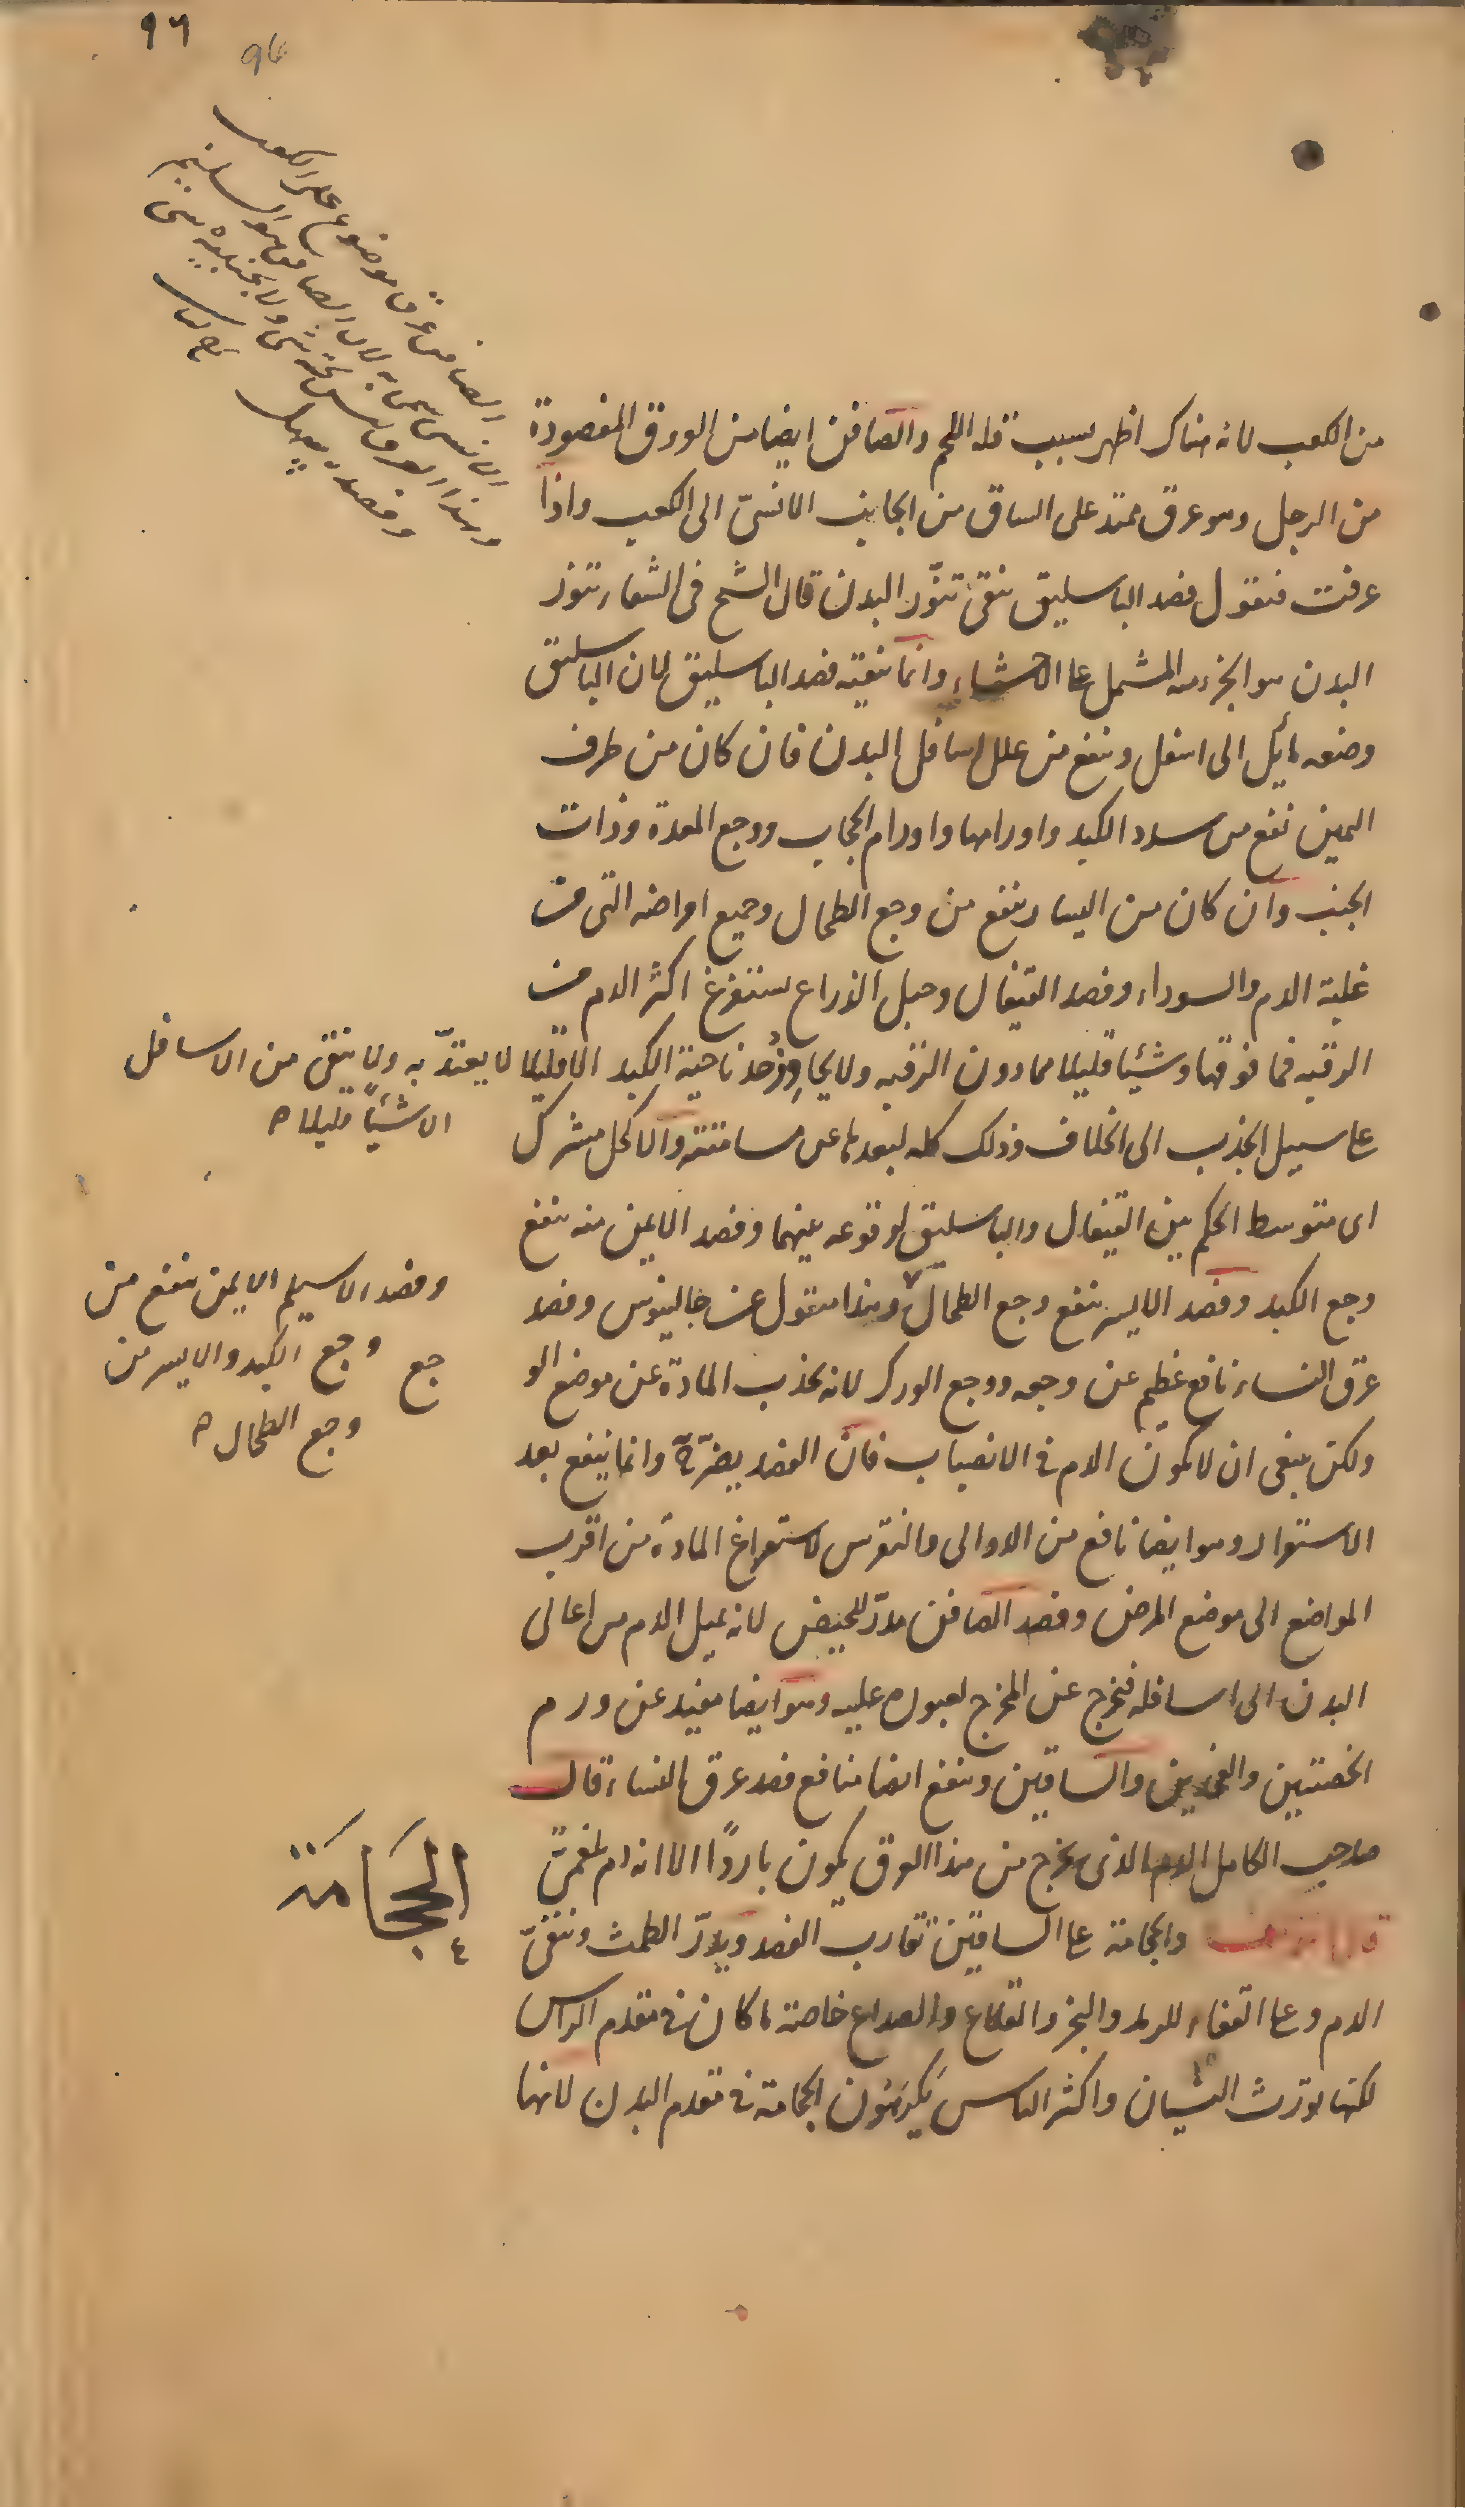 ٩٦
96
الصافن عرق موضوع على الكعب
الانسى سمى به لان الصافن هو السليم
وهذا العرق ليس تحته شى ولا بجنبيه شى
وفصده سهل
من الكعب لانه هناك اظهر بسبب قلة اللحم والصافن ايضا من العروق المفصودة
من الرجل وهو عرق ممتد على الساق من الجانب الانسىّ الى الكعب واذا
عرفت فنقول فصد الباسليق ينقى تنّور البدن قال الشيخ فى الشفاء تنور
البدن هو الجزء منه المشتمل على الاحشاء وانما ينقيه فصد الباسليق لان الباسليق
وضعه مائل الى اسفل وينفع من علل اسافل البدن فان كان من طرف
اليمين نفع من سدد الكبد واورامها واورام الحجاب ووجع المعدة وذات
الجنب وان كان من اليسار ينفع من وجع الطحال وجميع امراضه التى من
غلبة الدم والسوداء وفصد القيفال وحبل الذراع يستفرغ اكثر الدم من
الرقبه فما فوقها وشيئا قليلا مما دون الرقبه ولا يجاوز حد ناحية الكبد الا قليلا لا يعتدّ به ولا ينقى من الاسافل
الا شيئاً قليلا ه
على سبيل الجذب الى الخلاف وذلك كله لبعدها عن مسامتته والاكحل مشترك
اى متوسط الحكم بين القيفال والباسليق لوقوعه بينهما وفصد الايمن منه ينفع
وجع الكبد وفصد الايسر ينفع وجع الطحال وهذا منقول عن جالينوس وفصد
وفصد الاسيلم الايمن ينفع من
وجع الكبد والايسر من
وجع الطحال ه
جع
عرق النساء نافع عظيم عن وجعه ووجع الورك لانه يجذب المادة عن موضع الو
ولكن ينبغى ان لا يكون الدم فى الانصباب فان الفصد يضرّه وانما ينفع بعد
الاستقرار وهو ايضا نافع من الدوالى والنقرس لاستفراغ المادة من اقرب
المواضع الى موضع المرض وفصد الصافن مدرّ للحيض لانه يميل الدم من اعالى
البدن الى اسافله فيخرج عن المخرج لعبوره عليه وهو ايضا مفيد عن ورم
الخصيتين والفخذين والساقين وينفع ايضا منافع فصد عرق النساء قال
صاحب الكامل الدم الذى يخرج من هذا العرق يكون باردًا الا انه دم بلغمىّ
الحَجَامَة
والحجامة على الساقين تقارب الفصد ويدرّ الطمث وينقىّ
الدم وعلى القفاء للرمد والبخر والقلاع والصداع خاصة ما كان فى مقدم الراس
لكنها تورث النسيان واكثر الناس يكرهون الحجامة فى مقدم البدن لانها